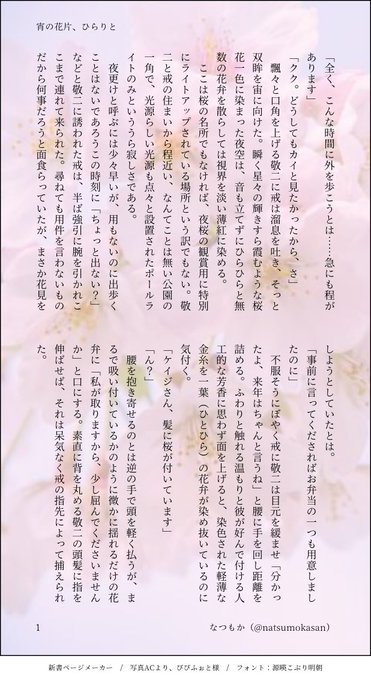 宵の花片、ひらりと
「全く、こんな時間に外を歩こうとは……急にも程が
あります」
「クク。どうしてもカイと見たかったから、さ」
飄々と口角を上げる敬二に戒は溜息を吐き、そっと
双眸を宙に向けた。瞬く星々の輝きすら霞むような桜
花一色に染まった夜空は、音も立てずにひらひらと無
数の花弁を散らしては視界を淡い薄紅に染める。
ここは桜の名所でもなければ、夜桜の観賞用に特別
にライトアップされている場所という訳でもない。敬
二と戒の住まいから程近い、なんてことは無い公園の
一角で、光源らしい光源も点々と設置されたポールラ
イトのみというら寂しさである。
夜更けと呼ぶには少々早いが、用もないのに出歩く
ことはないであろうこの時刻に「ちょっと出ない？」
などと敬二に誘われた戒は、半ば強引に腕を引かれこ
こまで連れて来られた。尋ねても用件を言わないもの
だから何事だろうと面食らっていたが、まさか花見を
しようとしていたとは。
「事前に言ってくださればお弁当の一つも用意しまし
たのに」
不服そうにぼやく戒に敬二は目元を緩ませ「分かっ
たよ、来年はちゃんと言うね」と腰に手を回し距離を
詰める。ふわりと触れる温もりと彼が好んで付ける人
工的な芳香に思わず面を上げると、染色された軽薄な
金糸を一葉（ひとひら）の花弁が染め抜いているのに
気付く。
「ケイジさん、髪に桜が付いています」
「ん？」
腰を抱き寄せるのとは逆の手で頭を軽く払うが、ま
るで吸い付いているかのように微かに揺れるだけの花
弁に「私が取りますから、少し屈んでくださいません
か」と口にする。素直に背を丸める敬二の頭髪に指を
伸ばせば、それは呆気なく戒の指先によって捕えられ
た。
1
なつもか（@natsumokasan）
新書ページメーカー / 写真ACより、びびふぉと様 / フォント：源暎こぶり明朝